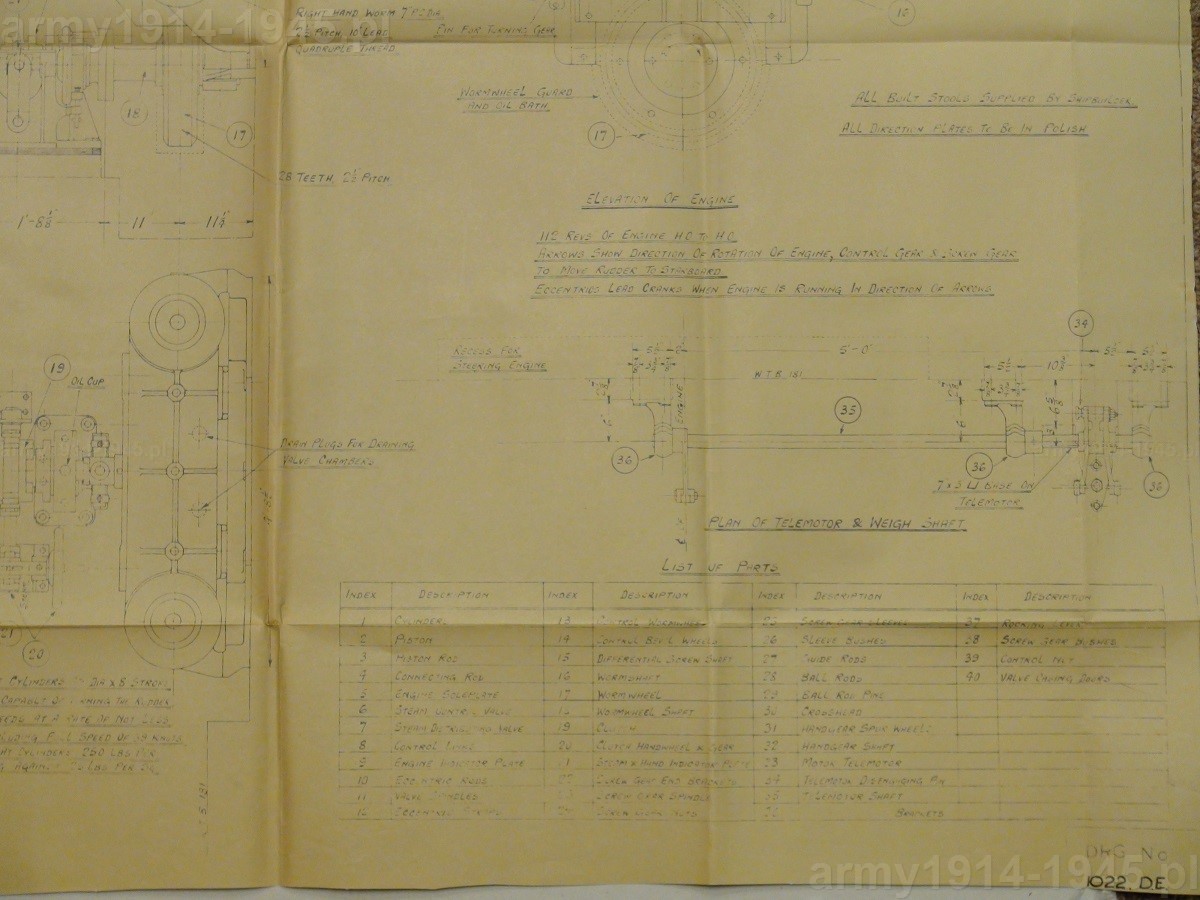 army1914-1945.pl
RIGHT HAND WORM 7" P. DIA.
2½ PITCH, 10" LEAD
QUADRUPLE THREAD.
PIN FOR TURNING GEAR
16
WORMWHEEL GUARD
AND OIL BATH.
17
ALL BUILT STOOLS SUPPLIED BY SHIPBUILDER.
ALL DIRECTION PLATES TO BE IN POLISH
18
17
28 TEETH, 2½ PITCH
11
ELEVATION OF ENGINE
112 REVS OF ENGINE H.O. TO H.O.
ARROWS SHOW DIRECTION OF ROTATION OF ENGINE, CONTROL GEAR & SCREW GEAR
TO MOVE RUDDER TO STARBOARD.
ECCENTRICS LEAD CRANKS WHEN ENGINE IS RUNNING IN DIRECTION OF ARROWS
19
OIL CUP
RECESS FOR
STEERING ENGINE
5'-0"
W.T.B. 131
34
ENGINE
35
36
36
36
DRAIN PLUGS FOR DRAINING
VALVE CHAMBERS
BASE ON
TELEMOTOR
PLAN OF TELEMOTOR & WEIGH SHAFT
LIST OF PARTS
INDEX DESCRIPTION INDEX DESCRIPTION INDEX DESCRIPTION INDEX DESCRIPTION
1 CYLINDERS 13 CONTROL WORMWHEEL 25 SCREW GEAR SLEEVES 37 ROCKING LEVER
2 PISTON 14 CONTROL BEVEL WHEELS 26 SLEEVE BUSHES 38 SCREW GEAR BUSHES
3 PISTON ROD 15 DIFFERENTIAL SCREW SHAFT 27 GUIDE RODS 39 CONTROL NUT
4 CONNECTING ROD 16 WORMSHAFT 28 BALL RODS 40 VALVE CASING DOORS
5 ENGINE SOLEPLATE 17 WORMWHEEL 29 BALL ROD PINS
6 STEAM CONTROL VALVE 18 WORMWHEEL SHAFT 30 CROSSHEAD
7 STEAM DISTRIBUTING VALVE 19 CLUTCH 31 HANDGEAR SPUR WHEELS
8 CONTROL LINKS 20 CLUTCH HANDWHEEL & GEAR 32 HANDGEAR SHAFT
9 ENGINE INDICATOR PLATE 1 STEAM & HAND INDICATOR PLATE 33 MOTOR TELEMOTOR
10 ECCENTRIC RODS 22 SCREW GEAR END BRACKETS 34 TELEMOTOR DISENGAGING PIN
11 VALVE SPINDLES SCREW GEAR SPINDLE 35 TELEMOTOR SHAFT
12 ECCENTRIC 24 SCREW GEAR NUTS 36 BRACKETS
21
20
CYLINDERS DIA X 8 STROKE
CAPABLE OF TURNING THE RUDDER
AT A RATE OF NOT LESS
FULL SPEED OF KNOTS
CYLINDERS 250 LBS PER
AGAINST LBS PER
131
DRG No
1022. D.E.
army1914-1945.pl